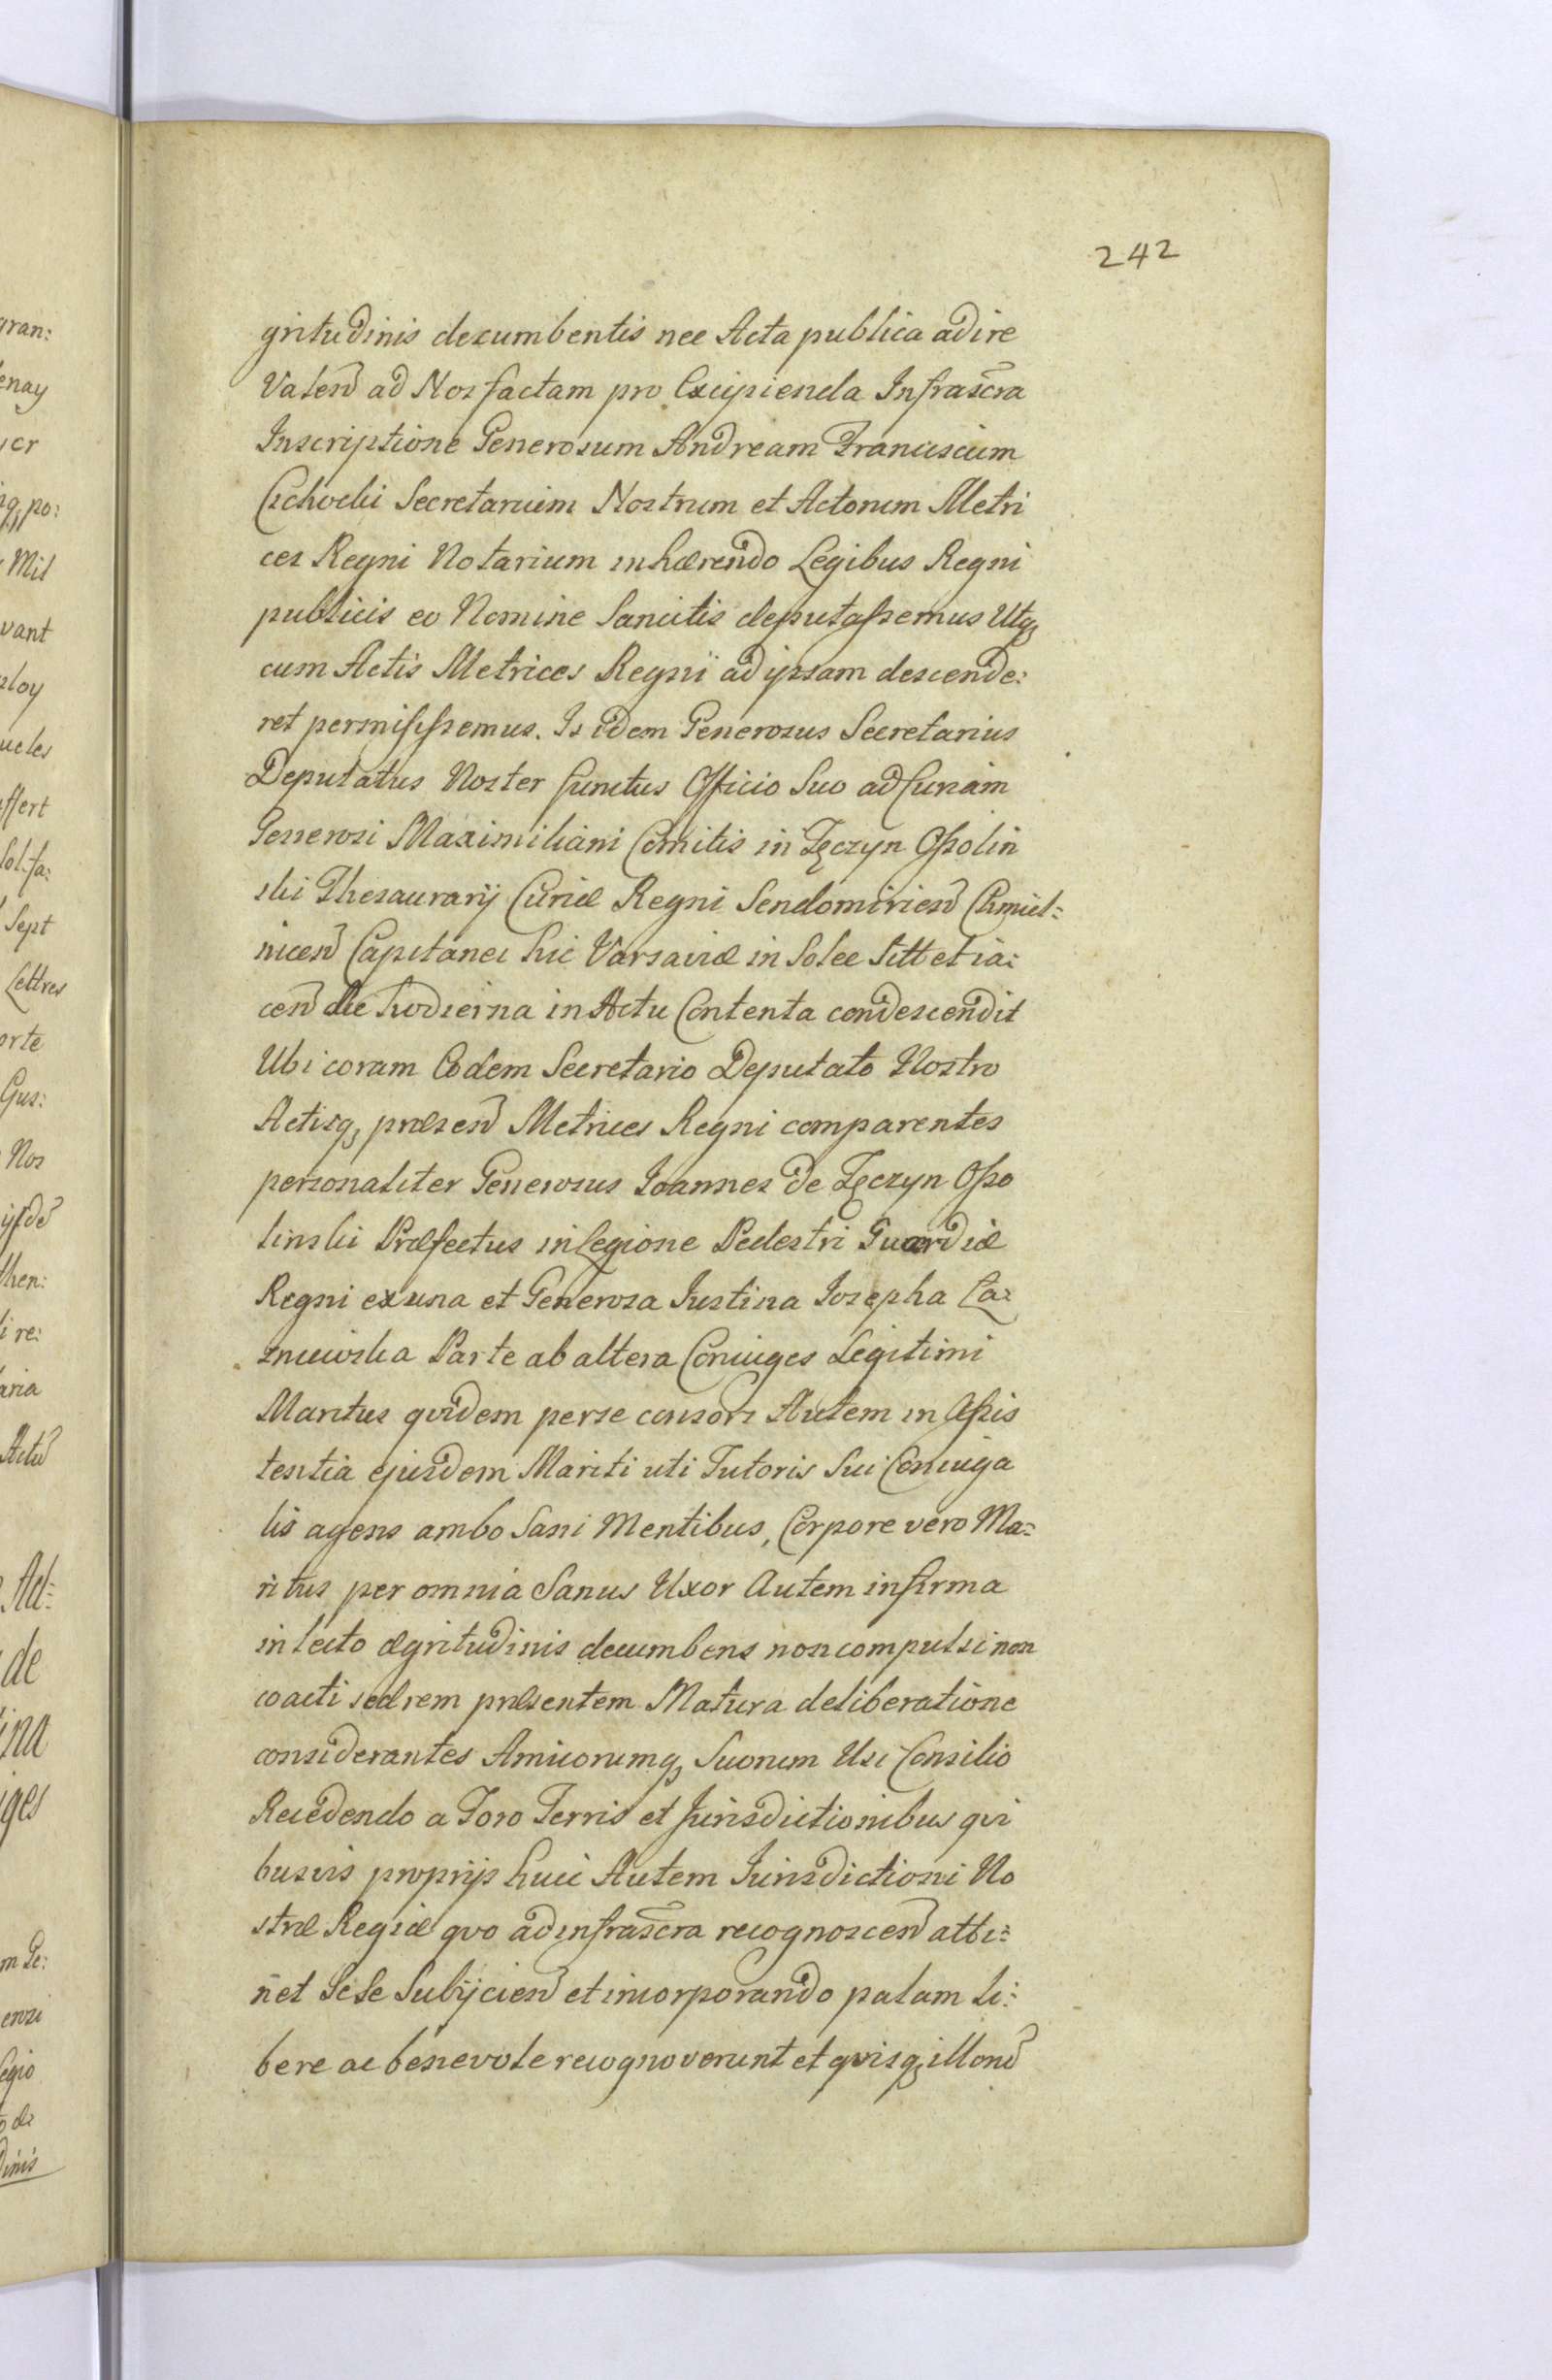 242
gritudinis decumbentis nec Acta publica adire
Valen̄ ad Nos factam pro Excipienda Infrascr̃a
Inscriptione Generosum Andream Franciscum
Cichocki Secretarium Nostrum et Actorum Metri
ces Regni Notarium inhærendo Legibus Regni
publicis eo Nomine Sancitis deputassemus Utq₃
cum Actis Metrices Regni ad ipsam descende:
ret permisissemus. Is idem Generosus Secretarius
Deputatus Noster functus Officio Suo ad Curiam
Generosi Maximiliani Comitis in Tęczyn Ossolin
ski Thesaurarij Curiæ Regni Sendomirien̄ Chmiel=
nicen̄ Capitanei hic Varsaviæ in Solec Sitt et ia:
cen̄ die hodierna in Actu Contenta condescendit
Ubi coram Eodem Secretario Deputato Nostro
Actisq₃ præsen̄ Metrices Regni comparentes
personaliter Generosus Joannes de Tęczyn Osso
linski Præfectus in Legione Pedestri Guardiæ
Regni ex una et Generosa Justina Josepha La:
zniewska Parte ab altera Coniuges Legitimi
Maritus qvidem per se consors Autem in Assis
tentia ejusdem Mariti uti Tutoris Sui Coniuga
lis agens ambo Sani Mentibus, Corpore vero Ma=
ritus per omnia Sanus Uxor Autem infirma
in lecto ægritudinis decumbens non compulsi non
coacti sed rem præsentem Matura deliberatione
considerantes Amicorumq₃ Suorum Usi Consilio
Recedendo a Foro Terris et Jurisdictionibus qvi
busvis proprijs huic Autem Jurisdictioni No
stræ Regiæ qvo ad infrascr̃a recognoscen̄ atti=
net Sese Subijcien̄ et incorporando palam li:
bere ac benevole recognoverunt et qvisq₃ illorū